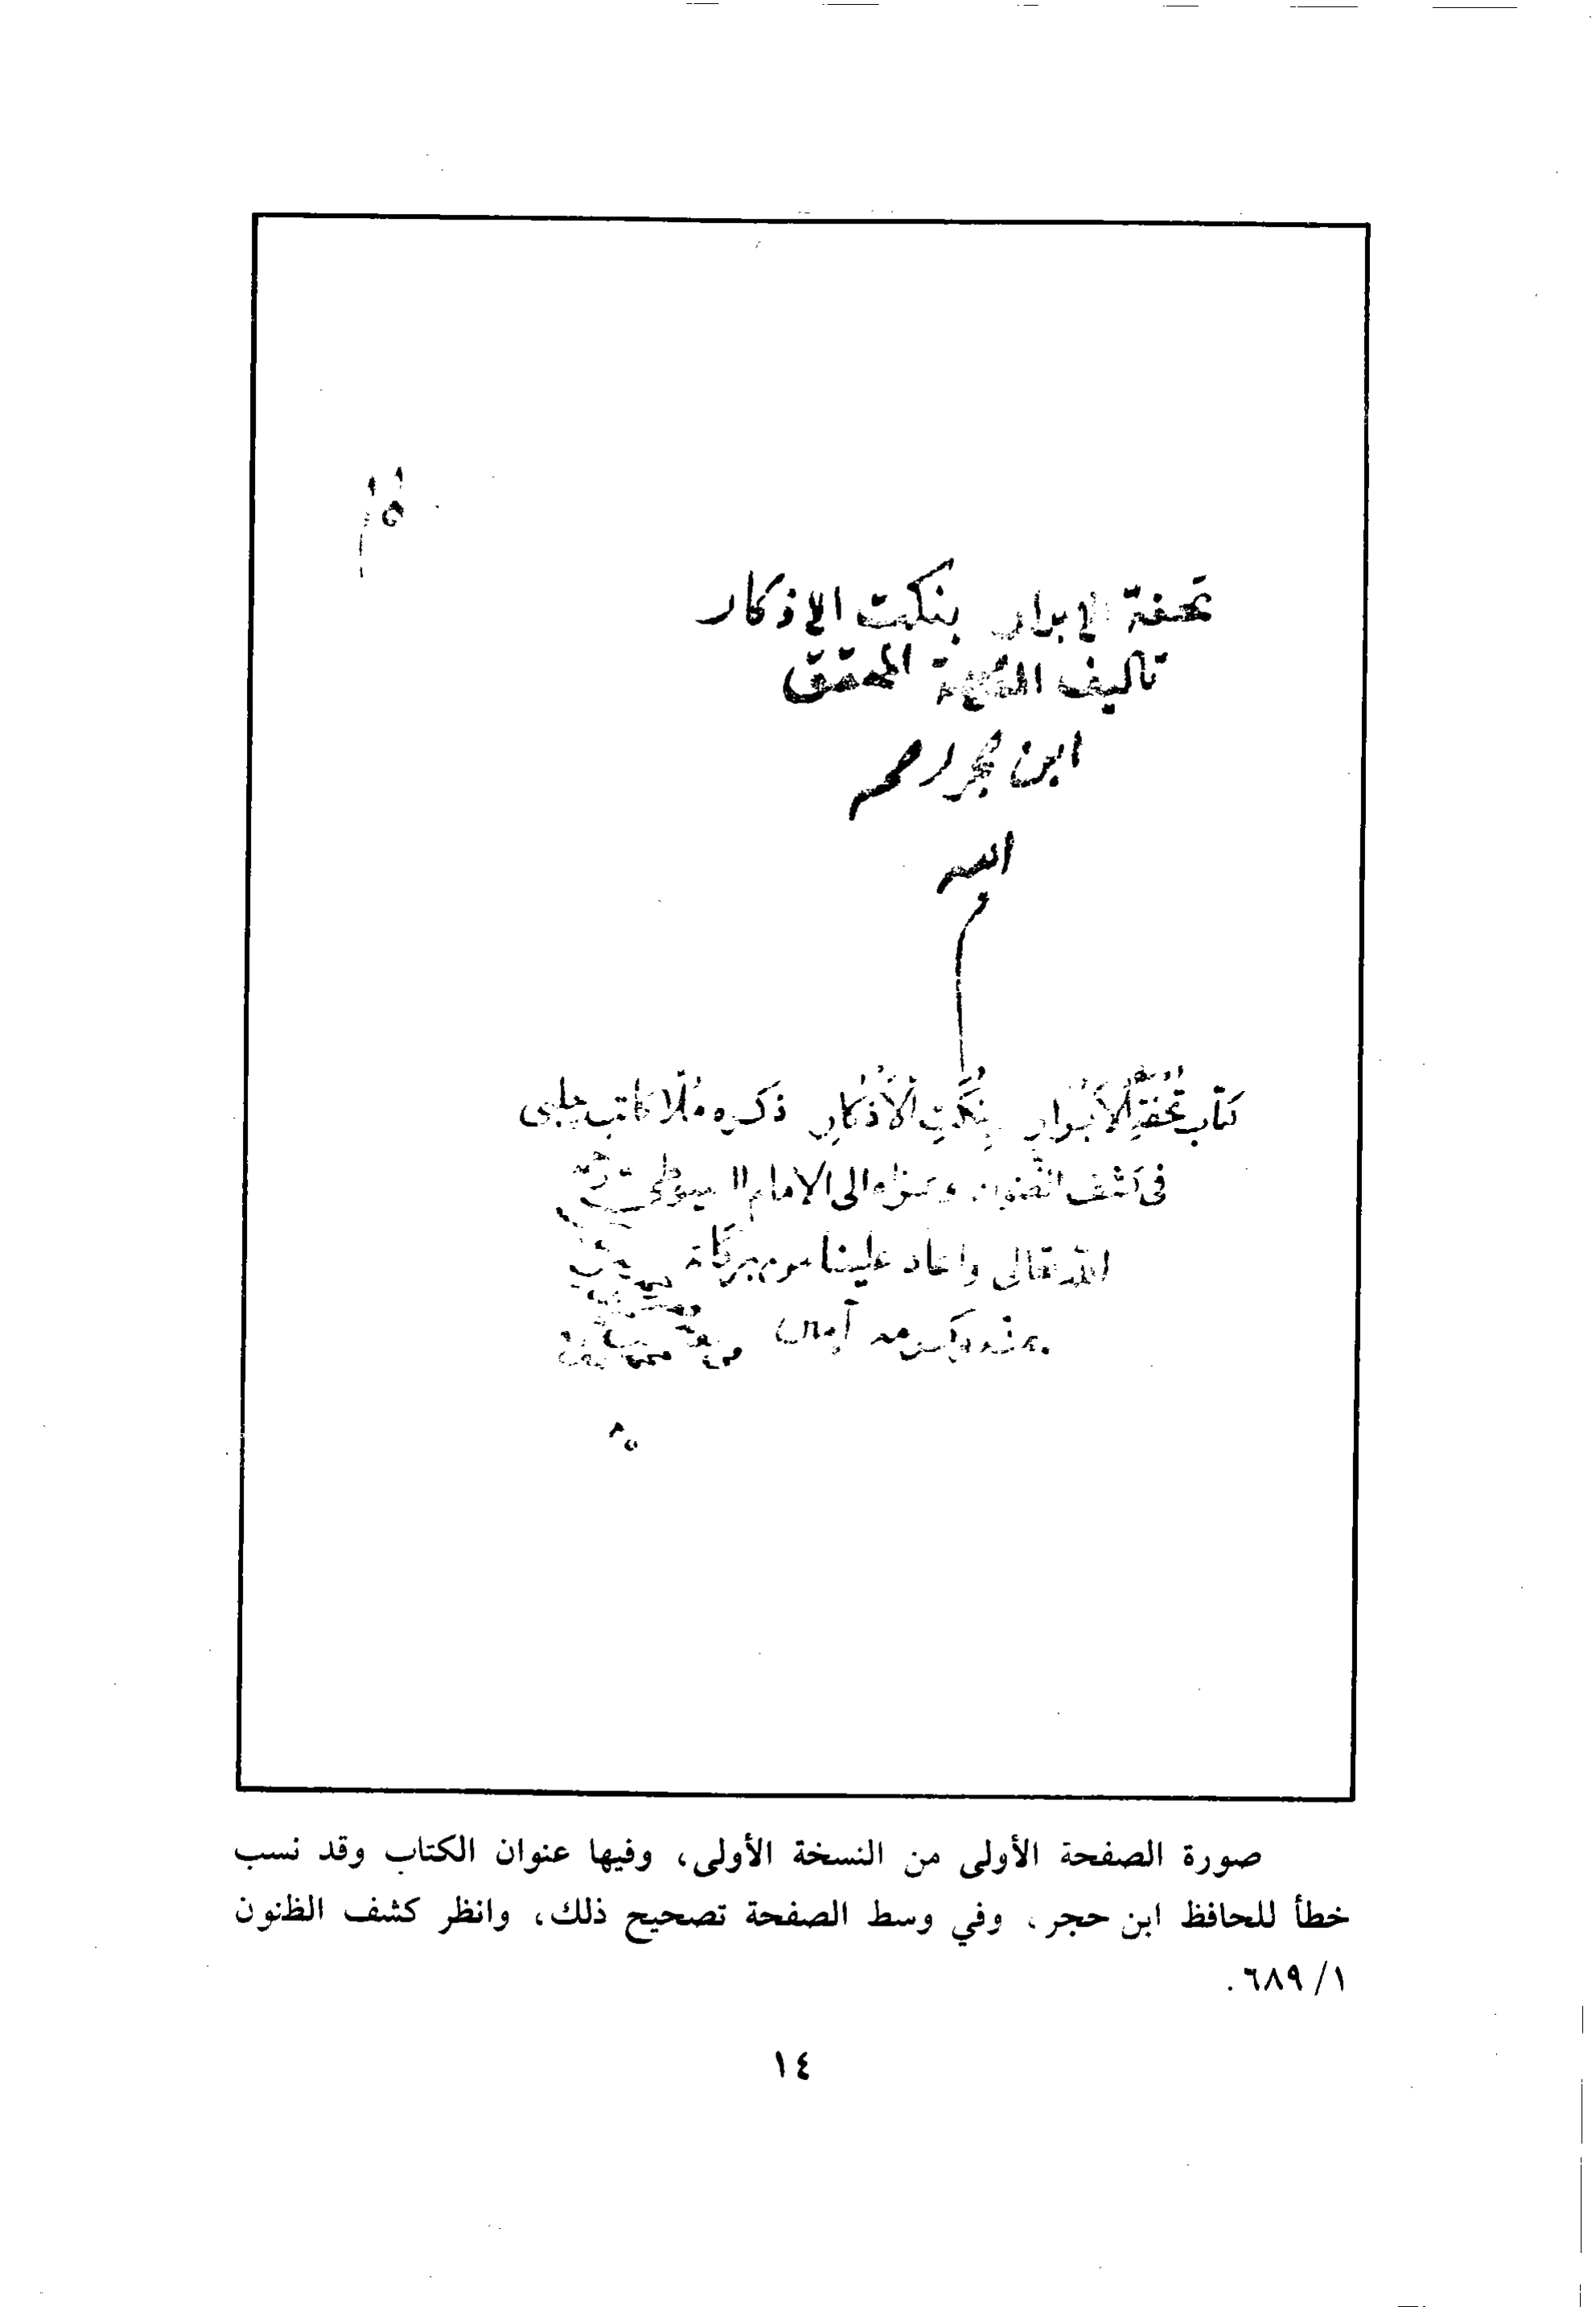 تحفة الابرار بنكت الاذكار
تاليف العلامة المحقق
ابن حجر رحمه
الله
كتاب تُحْفَةِ الْأَبْرَارِ بِنُكَتِ الْأَذْكَارِ ذكره مُلّا كاتب چلبى
فى كشف الظنون وعزاه الى الامام السيوطى
الله تعالى واعاد علينا من بركاته
بمنه وكرمه آمين
صورة الصفحة الأولى من النسخة الأولى، وفيها عنوان الكتاب وقد نسب
خطأ للحافظ ابن حجر، وفي وسط الصفحة تصحيح ذلك، وانظر كشف الظنون
١/ ٦٨٩.
١٤